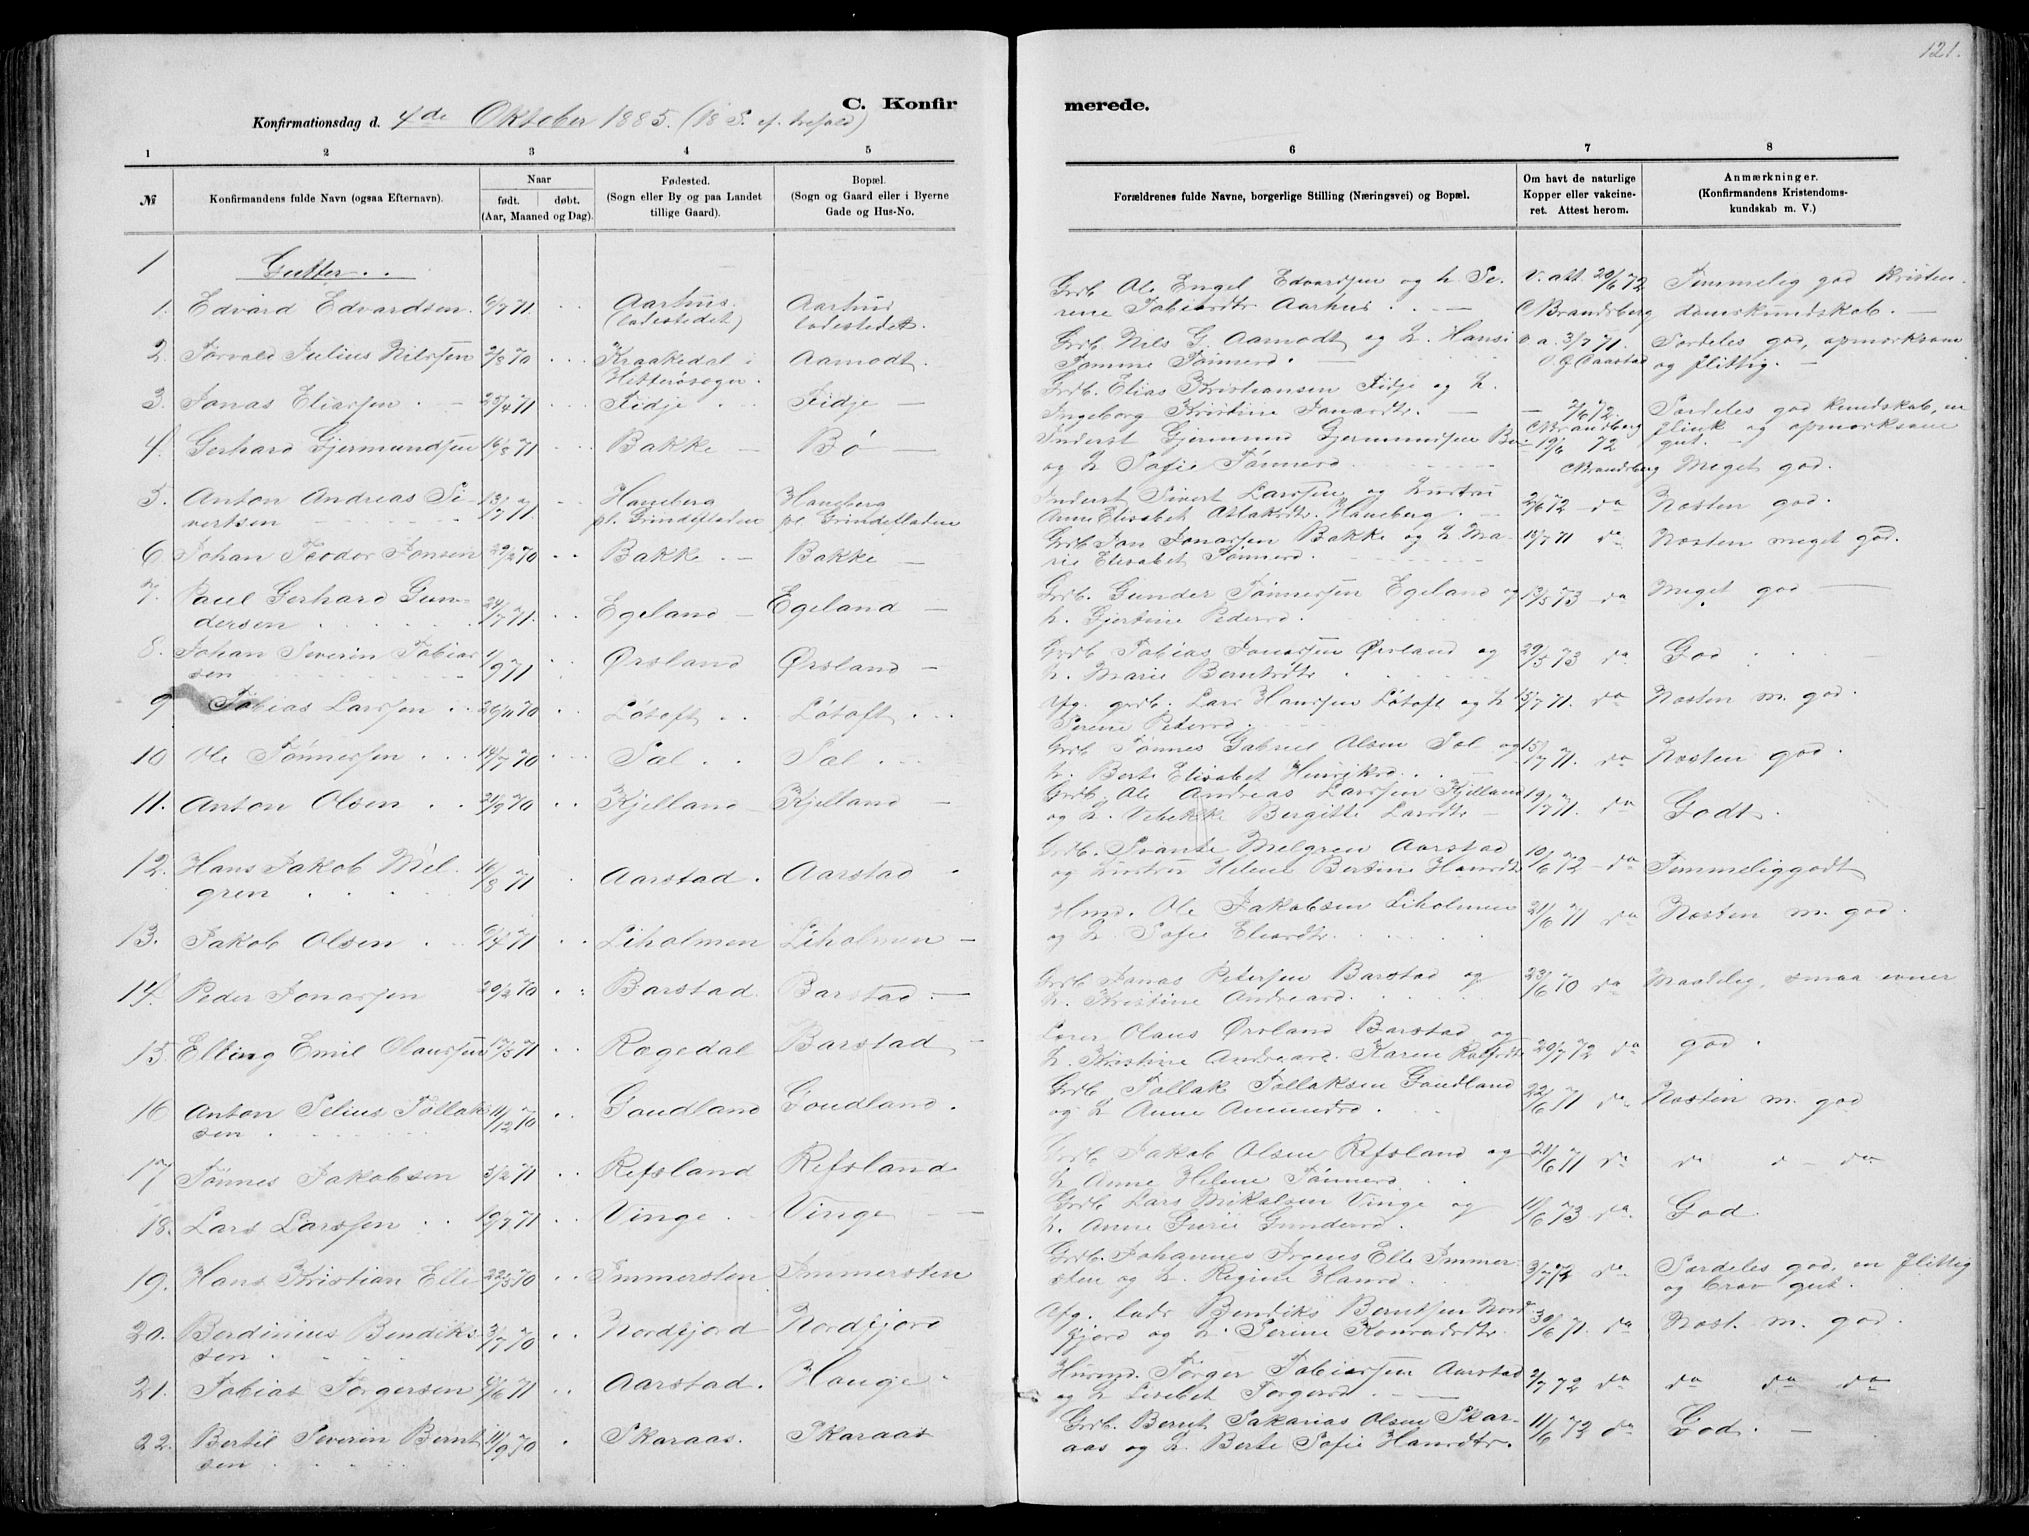 121.
C. Konfir
merede.
Konfirmationsdag d. 4de Oktober 1885. (18 S. ef. trefold)
1 2 3 4 5
6 7 8
№
Konfirmandens fulde Navn (ogsaa Efternavn).
Naar
født. døbt.
(Aar, Maaned og Dag).
Fødested.
(Sogn eller By og paa Landet
tillige Gaard).
Bopæl.
(Sogn og Gaard eller i Byerne
Gade og Hus-No.
Forældrenes fulde Navne, borgerlige Stilling (Næringsvei) og Bopæl.
Om havt de naturlige
Kopper eller vakcine-
ret. Attest herom.
Anmærkninger.
(Konfirmandens Kristendoms-
kundskab m. V.)
1 Gutter . .
1. Edvard Edvardsen 6/7 71 Aarhus (ladestedet) Aarhus ladestedet.
Grdb. Ole Engel Edvardsen og h. Se-
rene Tobiasdtr Aarhus . . —
V. att. 20/6 72
C Brandsberg
Temmelig god Kristen-
domskundskab. —
2. Torvald Julius Nilssen 2/8 70 Kraakedal i Hetterøsogn. Aamodt.
Grdb. Nils G. Aamodt og h. Hansi
Tomine Tønnesd.
v a. 3/7 71.
Særdeles god, opmærksom
og flittig. —
3. Jonas Eliassen . — 25/4 71 Fidje . . Fidje —
Grdb. Elias Kristiansen Fidje og h.
Ingeborg Kristine Jonasdtr. —
— 2/6 72.
C Brandsberg
Særdeles god kundskab, en
flink og opmærksom
gut. —
4. Gerhard Gjermundsen 16/8 71 Bakke — Bø —
Inderst Gjermund Gjermundsen Bø
og h. Sofie Tønnesd.
19/6 72
C Brandsberg
Meget god.
5. Anton Andreas Si-
vertsen 13/7 71 Haneberg pl. Grindefladen Haneberg pl. Grindefladen
Inderst Sivert Larssen og hustru
Anne Elisabet Atlaksdtr. Haneberg. —
2/6 72 — da
Næsten god.
6. Johan Teodor Jonsen 29/2 70 Bakke. — Bakke —
Grdb. Jon Jonassen Bakke og h. Ma-
rie Elisabet Tønnesd.
13/7 71 da
Næsten meget god.
7. Paul Gerhard Gun-
dersen 24/7 71. Egeland — Egeland —
Grdb. Gunder Tønnessen Egeland og
h. Gjertine Pedersd.
13/5 73 — da
Meget god —
8. Johan Severin Tobias-
sen 1/9 71 Ørsland Ørsland —
Grdb. Tobias Jonassen Ørsland og
h. Marie Berntsdtr.
29/5 73 da
God
9 Tobias Larssen . . 26/11 70 Løtoft . . Løtoft . . .
Afg. grdb. Lars Hanssen Løtoft og h
Serene Pedersd.
15/7 71. da
Næsten m. god.
10 Ole Tønnessen . . . 14/7 70 Sæl . . Sæl . . .
Grdb. Tønnes Gabriel Olsen Sæl og
h. Berte Elisabet Henriksd. . .
15/7 71. da
Næsten god.
11. Anton Olsen . . 21/9 70 Kjelland — Kjelland —
Grdb. Ole Andreas Larssen Kjelland
og h. Vebekke Bergitte Larsdtr —
19/7 71. da
Godt.
12. Hans Jakob Mel-
gren 16/8 71 Aarstad . Aarstad .
Grdb. Svante Melgren Aarstad
og hustru Helene Bertine Hansdtr
10/6 72 — da
Temmelig godt
13. Jakob Olsen . . 9/4 71 Liholmen Liholmen —
Hmd. Ole Jakobsen Liholmen
og h. Sofie Eliasdtr.
21/6 71 da
Næsten m. god.
14. Peder Jonassen 20/2 70 Barstad. Barstad. —
Grdb Jonas Petersen Barstad og
h. Kristine Andreasd.
23/6 70 da
Maadelig, smaa evner
15. Elling Emil Olaussen 17/5 71 Rægedal Barstad —
Lærer Olaus Ørsland Barstad og
h. Kristine Andreasd. Karen Rolfsdtr
29/7 72 da
god.
16 Anton Selius Tollak-
sen 11/12 70 Gaudland Goudland.
Grdb. Tollak Tollaksen Gaudland
og h Anne Amundsd.
22/6 71 da
Næsten m. god
17 Tønnes Jakobsen 3/2 71 Refsland Refsland
Grdb Jakob Olsen Refsland og
h Anne Helene Tønnesd
21/6 71 da
da d — da
18. Lars Larssen . . 19/7 71 Vinge . Vinge . —
Grdb Lars Mikalsen Vinge og
h. Anne Gurie Gundersd.
11/6 73 da.
God.
19. Hans Kristian Elle 22/5 70 Immersten Immersten
Grdb. Johannes Irgens Elle Immer-
sten og h. Regine Hansd.
3/7 72 da
Særdeles god, en flittig
og brav gut.
20. Berdinius Bendiks-
sen 3/7 70 Nordfjord Nordfjord
Afg. lods Bendiks Berntsen Nord-
fjord og h. Serene Konradsdtr.
30/6 71. da
Næst. m. god.
21. Tobias Torgersen 4/6 71 Aarstad . Hauge .
Husmd. Torger Tobiassen Aarstad
og h Lisebet Torgersd. . —
2/7 72 da
da da da
22. Bertil Severin Bernt-
sen 11/9 70 Skaraas. Skaraas
Grdb. Bernt Sakarias Olsen Skar-
aas og h. Berte Sofie Hansdtr.
11/6 72 da
God. —